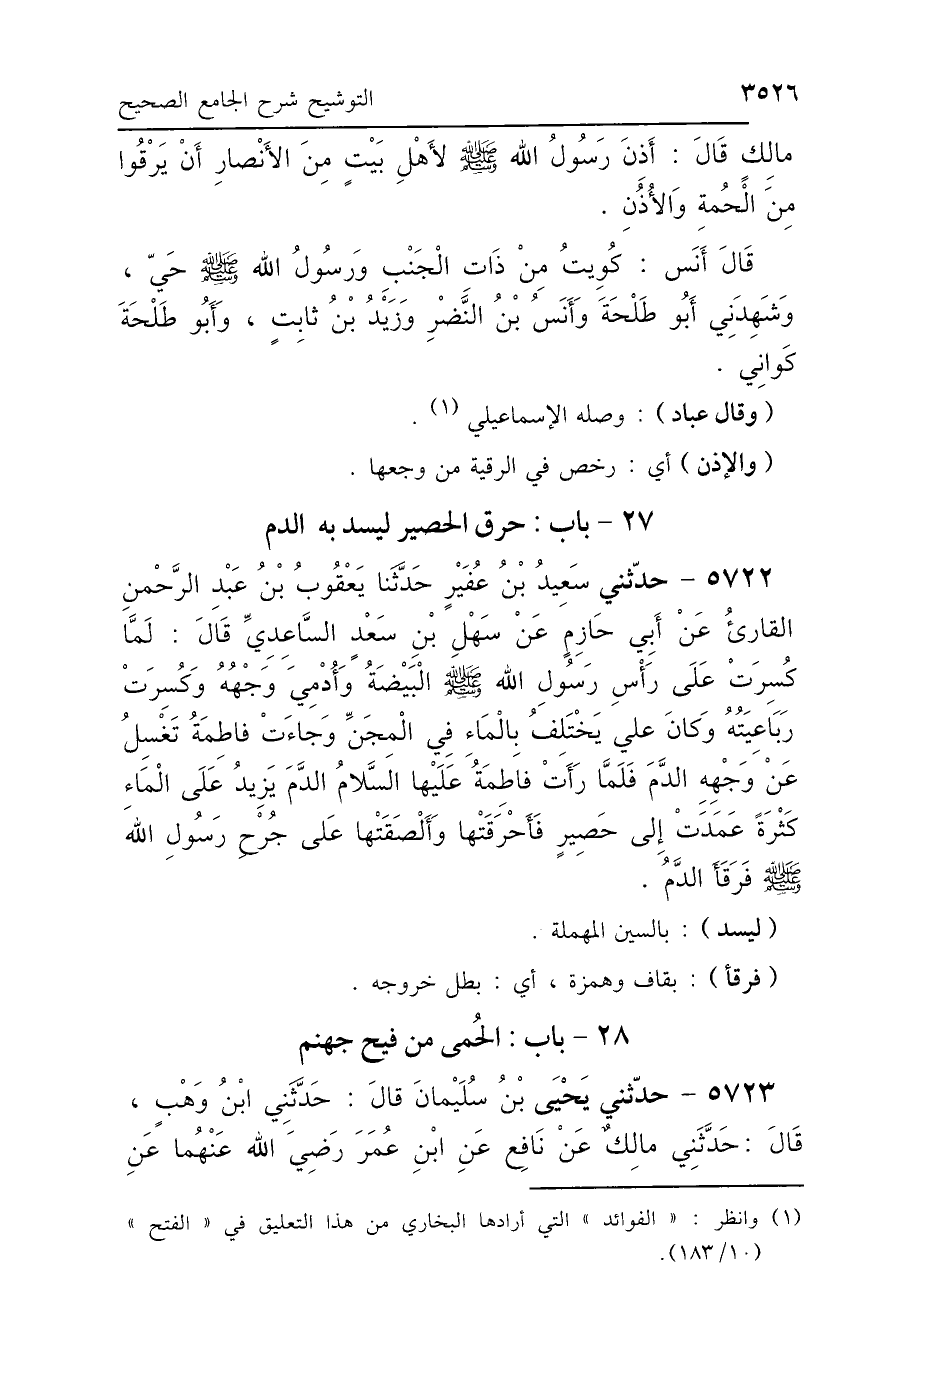 ٣٥٢٦ التوشيح شرح الجامع الصحيح
مالِكٍ قَالَ : أَذِنَ رَسُولُ الله ﷺ لأَهْلِ بَيْتٍ مِنَ الأَنْصارِ أَنْ يَرْقُوا
مِنَ الْحُمةِ وَالأُذُنِ .
قَالَ أَنَس : كُوِيتُ مِنْ ذَاتِ الْجَنْبِ وَرسُولُ الله ﷺ حَيّ ،
وَشَهِدَنِي أَبُو طَلْحَةَ وَأَنَسُ بْنُ النَّضْرِ وَزَيْدُ بْنُ ثابِتٍ ، وَأَبُو طَلْحَةَ
كَوانِي .
( وقال عباد ) : وصله الإسماعيلي (١) .
( والإذن ) أي : رخص في الرقية من وجعها .
٢٧ - باب : حرق الحصير ليسد به الدم
٥٧٢٢ - حدّثني سَعِيدُ بْنُ عُفَيْرٍ حَدَّثَنا يَعْقُوبُ بْنُ عَبْدِ الرَّحْمنِ
القارئُ عَنْ أَبِي حَازِمٍ عَنْ سَهْلِ بْنِ سَعْدٍ السَّاعِدِيِّ قَالَ : لَمَّا
كُسِرَتْ عَلَى رَأْسِ رَسُولِ الله ﷺ الْبَيْضَةُ وَأُدْمِيَ وَجْهُهُ وَكُسِرَتْ
رَبَاعِيَتُهُ وَكَانَ علي يَخْتَلِفُ بِالْمَاءِ فِي الْمِجَنِّ وَجاءَتْ فاطِمَةُ تَغْسِلُ
عَنْ وَجْهِهِ الدَّمَ فَلَمَّا رَأَتْ فاطِمَةُ عَلَيْها السَّلامُ الدَّمَ يَزِيدُ عَلَى الْماءِ
كَثْرَةً عَمَدَتْ إلى حَصِيرٍ فَأَحْرَقَتْها وَأَلْصَقَتْها عَلى جُرْحِ رَسُولِ الله
ﷺ فَرَقَأَ الدَّمُ .
( ليسد ) : بالسين المهملة .
( فرقأ ) : بقاف وهمزة ، أي : بطل خروجه .
٢٨ - باب : الحُمى من فيح جهنم
٥٧٢٣ - حدّثني يَحْيَى بْنُ سُلَيْمانَ قالَ : حَدَّثَنِي ابْنُ وَهْبٍ ،
قَالَ : حَدَّثَنِي مالِكٌ عَنْ نَافِعٍ عَنِ ابْنِ عُمَرَ رَضِيَ الله عَنْهُما عَنِ
(١) وانظر : « الفوائد » التي أرادها البخاري من هذا التعليق في « الفتح »
(١٨٣/١٠).